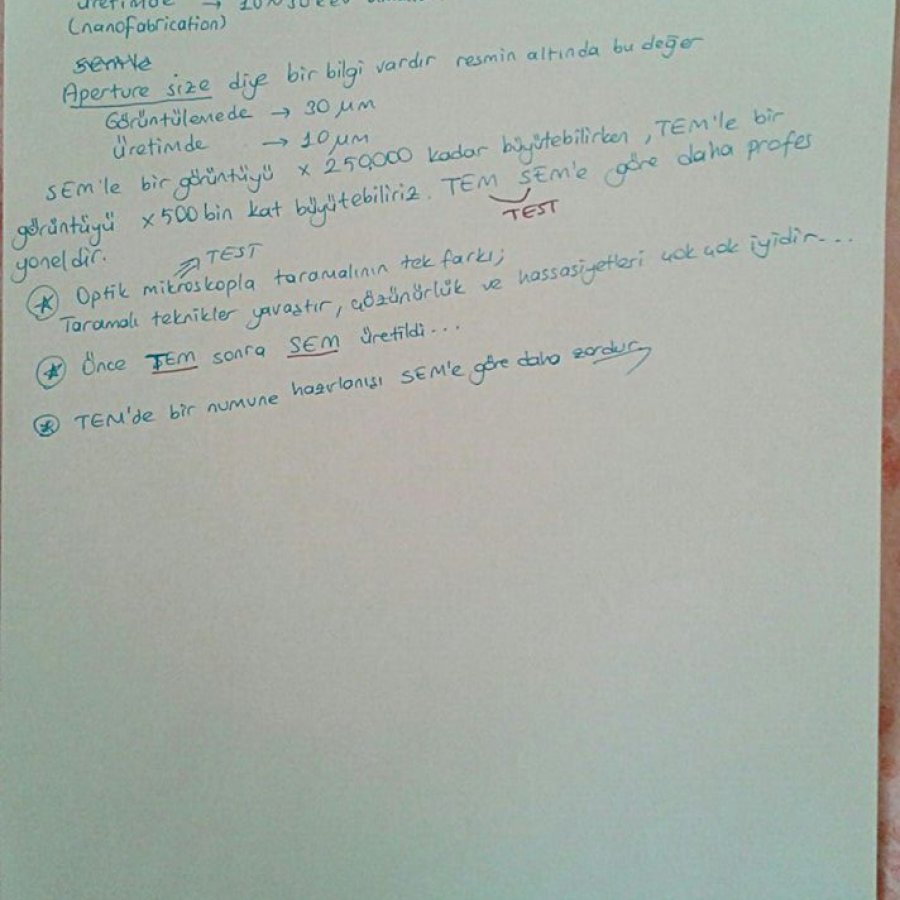 üretimde →
(nanofabrication)
Aperture size diye bir bilgi vardır resmin altında bu değer
Görüntülemede → 30 µm
üretimde → 10 µm
SEM'le bir görüntüyü x 250,000 kadar büyütebilirken, TEM'le bir
görüntüyü x 500 bin kat büyütebiliriz. TEM SEM'e göre daha profes
TEST
yoneldir.
TEST
Optik mikroskopla taramalının tek farkı;
Taramalı teknikler yavaştır, çözünürlük ve hassasiyetleri çok çok iyidir...
Önce TEM sonra SEM üretildi...
TEM'de bir numune hazırlanışı SEM'e göre daha zordur,